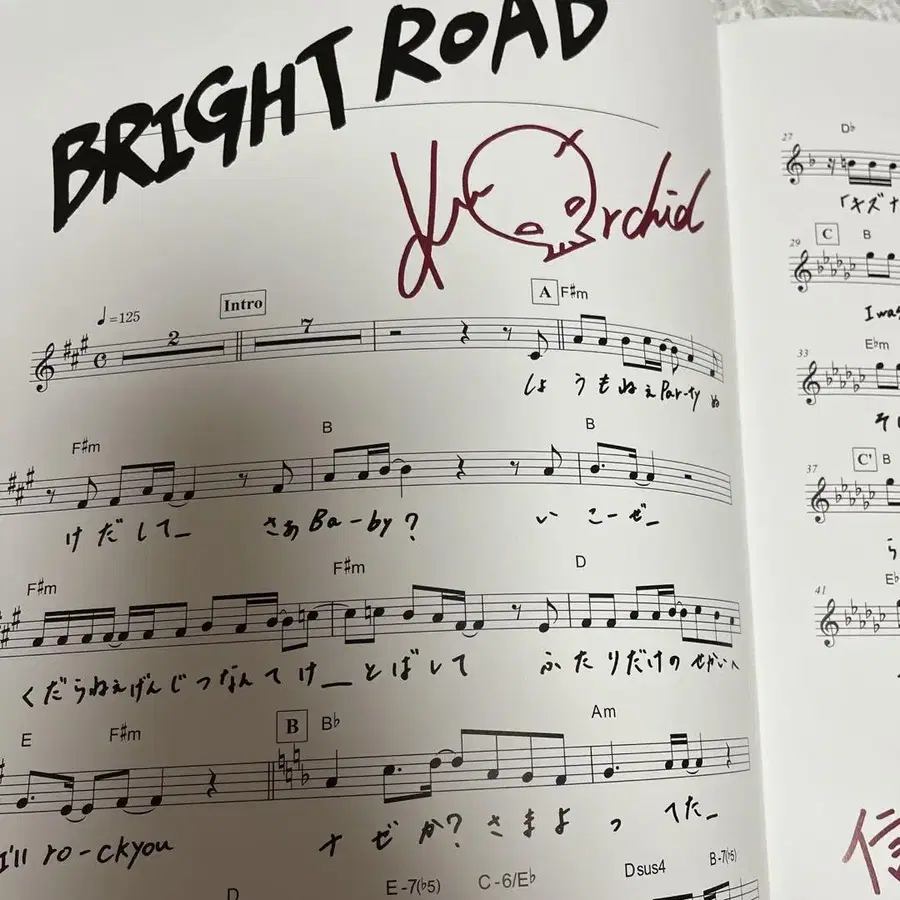 BRIGHT ROAD
Orchid
♩=125
Intro
2
7
A F#m
しょうもねぇPar-ty ぬ
F#m B B
けだして_ さぁBa-by? いこーぜ_
F#m F#m D
くだらねぇげんじつなんてけ_とばして ふたりだけのせかいへ
E F#m B B♭ Am
I'll ro-ckyou ナゼか?さまよってた_
D E-7(♭5) C-6/E♭ Dsus4 B-7(♭5)
27 D♭
「キズナ
29 C B
I was
33 E♭m
そ
37 C' B
ら
41 E♭
信